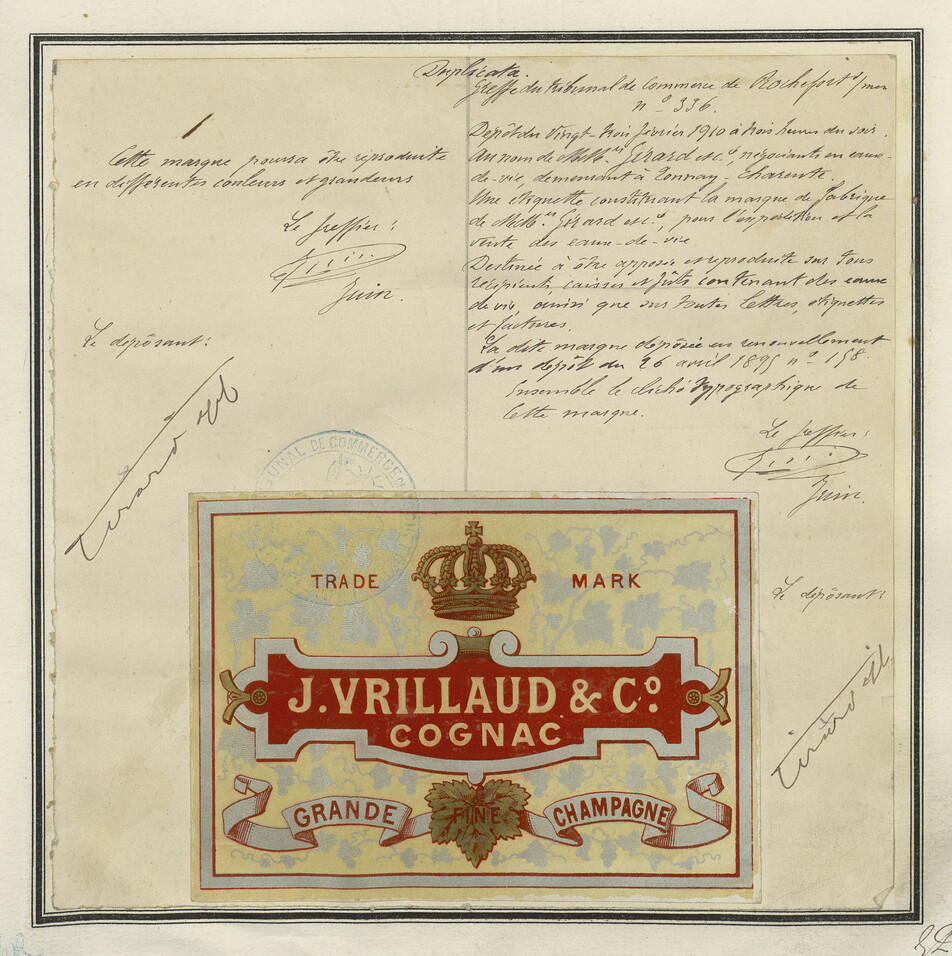 Duplicata.
Greffe du tribunal de Commerce de Rochefort s/mer
n° 336.
Dépôt du Vingt-trois février 1910 à trois heures du soir.
Au nom de MM.rs Girard et C.ie, négociants en eaux-
de-vie, demeurant à Tonnay-Charente.
Une étiquette constituant la marque de fabrique
de MM.rs Girard et C.ie, pour l'expédition et la
vente des eaux-de-vie
Destinée à être apposée et reproduite sur tous
récipients, caisses et fûts contenant des eaux
de vie, ainsi que sur toutes lettres, étiquettes
et factures.
La dite marque déposée en renouvellement
d'un dépôt du 26 avril 1895 n° 158.
Ensemble le cliché typographique de
cette marque.
Le greffier:
Le déposant:
Girard et C
1
Cette marque pourra être reproduite
en différentes couleurs et grandeurs
Le greffier:
Le déposant:
Girard et C
TRIBUNAL DE COMMERCE
TRADE MARK
J. VRILLAUD & Cº.
COGNAC
GRANDE FINE CHAMPAGNE